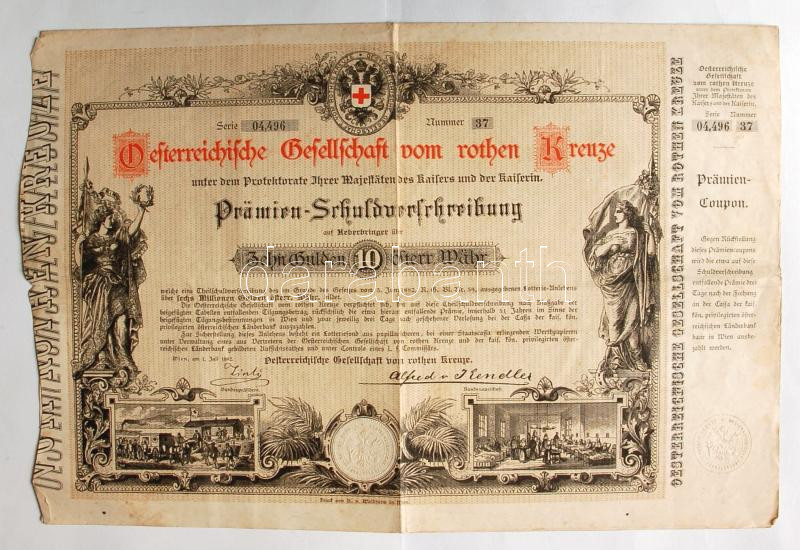 Serie 04,496 Nummer 37
Oesterreichische Gesellschaft vom rothen Kreuze
unter dem Protektorate Ihrer Majestäten des Kaisers und der Kaiserin.
Prämien-Schuldverschreibung
auf Ueberbringer über
Zehn Gulden 10 österr. Währ.
welche eine Theilschuldverschreibung des im Grunde des Gesetzes vom 3. Juni 1882, R. G. Bl. Nr. 59, ausgegebenen Lotterie-Anlehens
über sechs Millionen Gulden österr. Währ. bildet.
Die Oesterreichische Gesellschaft vom rothen Kreuze verpflichtet sich, auf diese Theilschuldverschreibung nach Ausgabe der
beigefügten Tabellen entfallenden Tilgungsbetrag, rücksichtlich die etwa hierauf entfallende Prämie, innerhalb 51 Jahren im Sinne der
beigefügten Tilgungsbestimmungen in Wien und zwar jeweilig drei Tage nach geschehener Verlosung bei der Cassa der kais. kön.
privilegirten österreichischen Länderbank auszuzahlen.
Zur Sicherstellung dieses Anlehens besteht ein Lotteriefond aus pupillarsicheren, bei einer Staatscassa erliegenden Werthpapieren
unter Verwaltung eines aus Vertretern der Oesterreichischen Gesellschaft vom rothen Kreuze und der kais. kön. privilegirten österreichischen
Länderbank gebildeten Aufsichtsrathes und unter Controle eines l. f. Commissärs.
Wien, am 1. Juli 1882.
Oesterreichische Gesellschaft vom rothen Kreuze.
Alfred v. Kendler
Bundespräsident. Bundesanwaltschaft.
Druck von R. v. Waldheim in Wien.
OESTERREICHISCHE GESELLSCHAFT VOM ROTHEN KREUZE
Oesterreichische
Gesellschaft
vom rothen Kreuze
unter dem Protektorate
Ihrer Majestäten des
Kaisers und der Kaiserin.
Serie Nummer
04,496 37
Prämien-
Coupon.
Gegen Rückstellung
dieses Prämiencoupons
wird die etwa auf diese
Schuldverschreibung
entfallende Prämie drei
Tage nach der Ziehung
bei der Cassa der kais.
kön. privilegirten österreichischen
Länderbank
baar in Wien ausbezahlt
werden.
darabanth